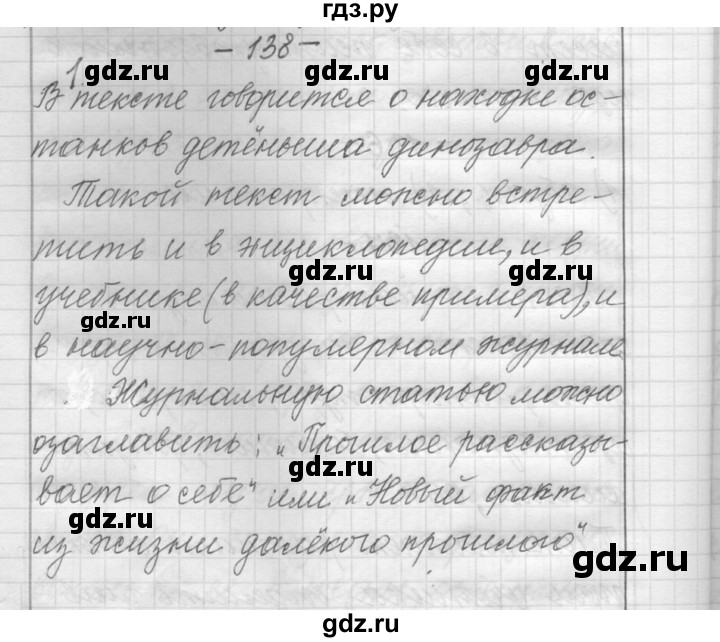 гдз.ру
- 138 -
1
gdz.ru gdz.ru gdz.ru
В тексте говорится о находке ос-
танков детёныша динозавра.
Такой текст можно встре-
тить и в энциклопедии, и в
gdz.ru gdz.ru
учебнике (в качестве примера), и
gdz.ru
в научно-популярном журнале
Журнальную статью можно
озаглавить: „Прошлое рассказы-
gdz.ru
вает о себе" или „Новый факт
gdz.ru
из жизни далёкого прошлого"
gdz.ru
gdz.ru